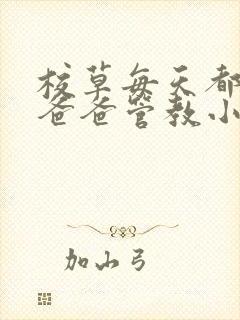 校草每天都
爸爸管教小
加山弓